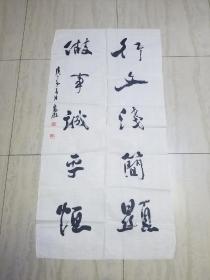 行文淺簡顯
做事誠平恒